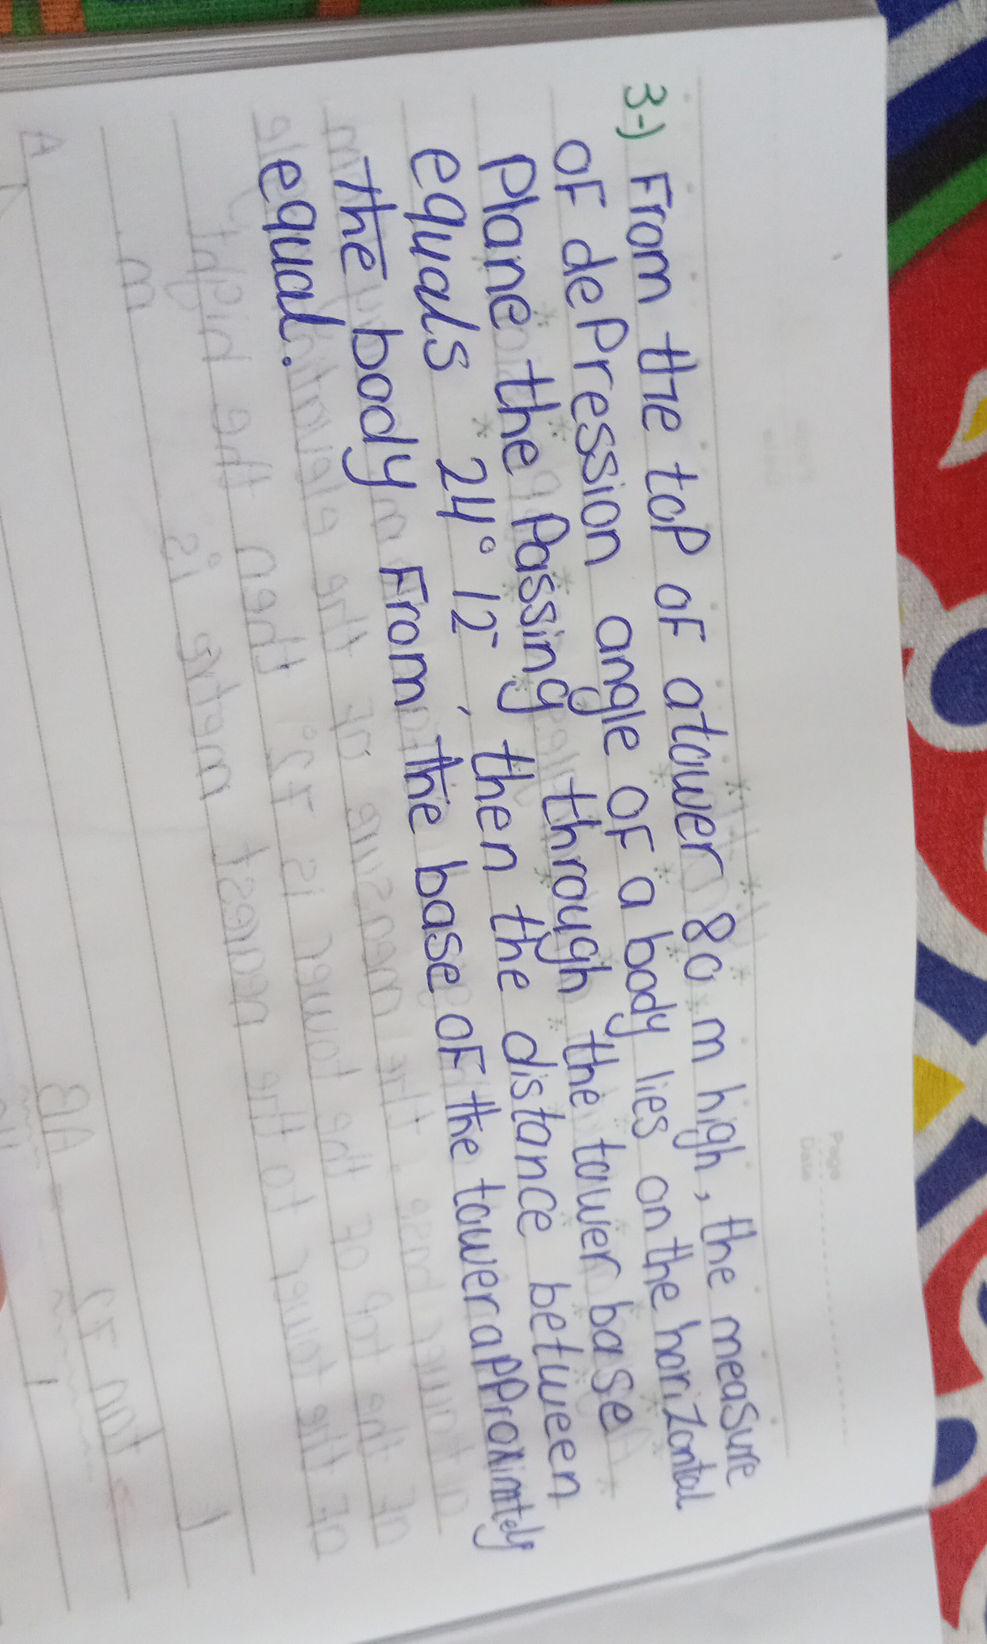 3-) From the top of a tower 80 m high, the measure
of depression angle of a body lies on the horizontal
Plane the Passing through the tower base
equals 24° 12', then the distance between
the body From the base of the tower approximately
equal.
Page
Date